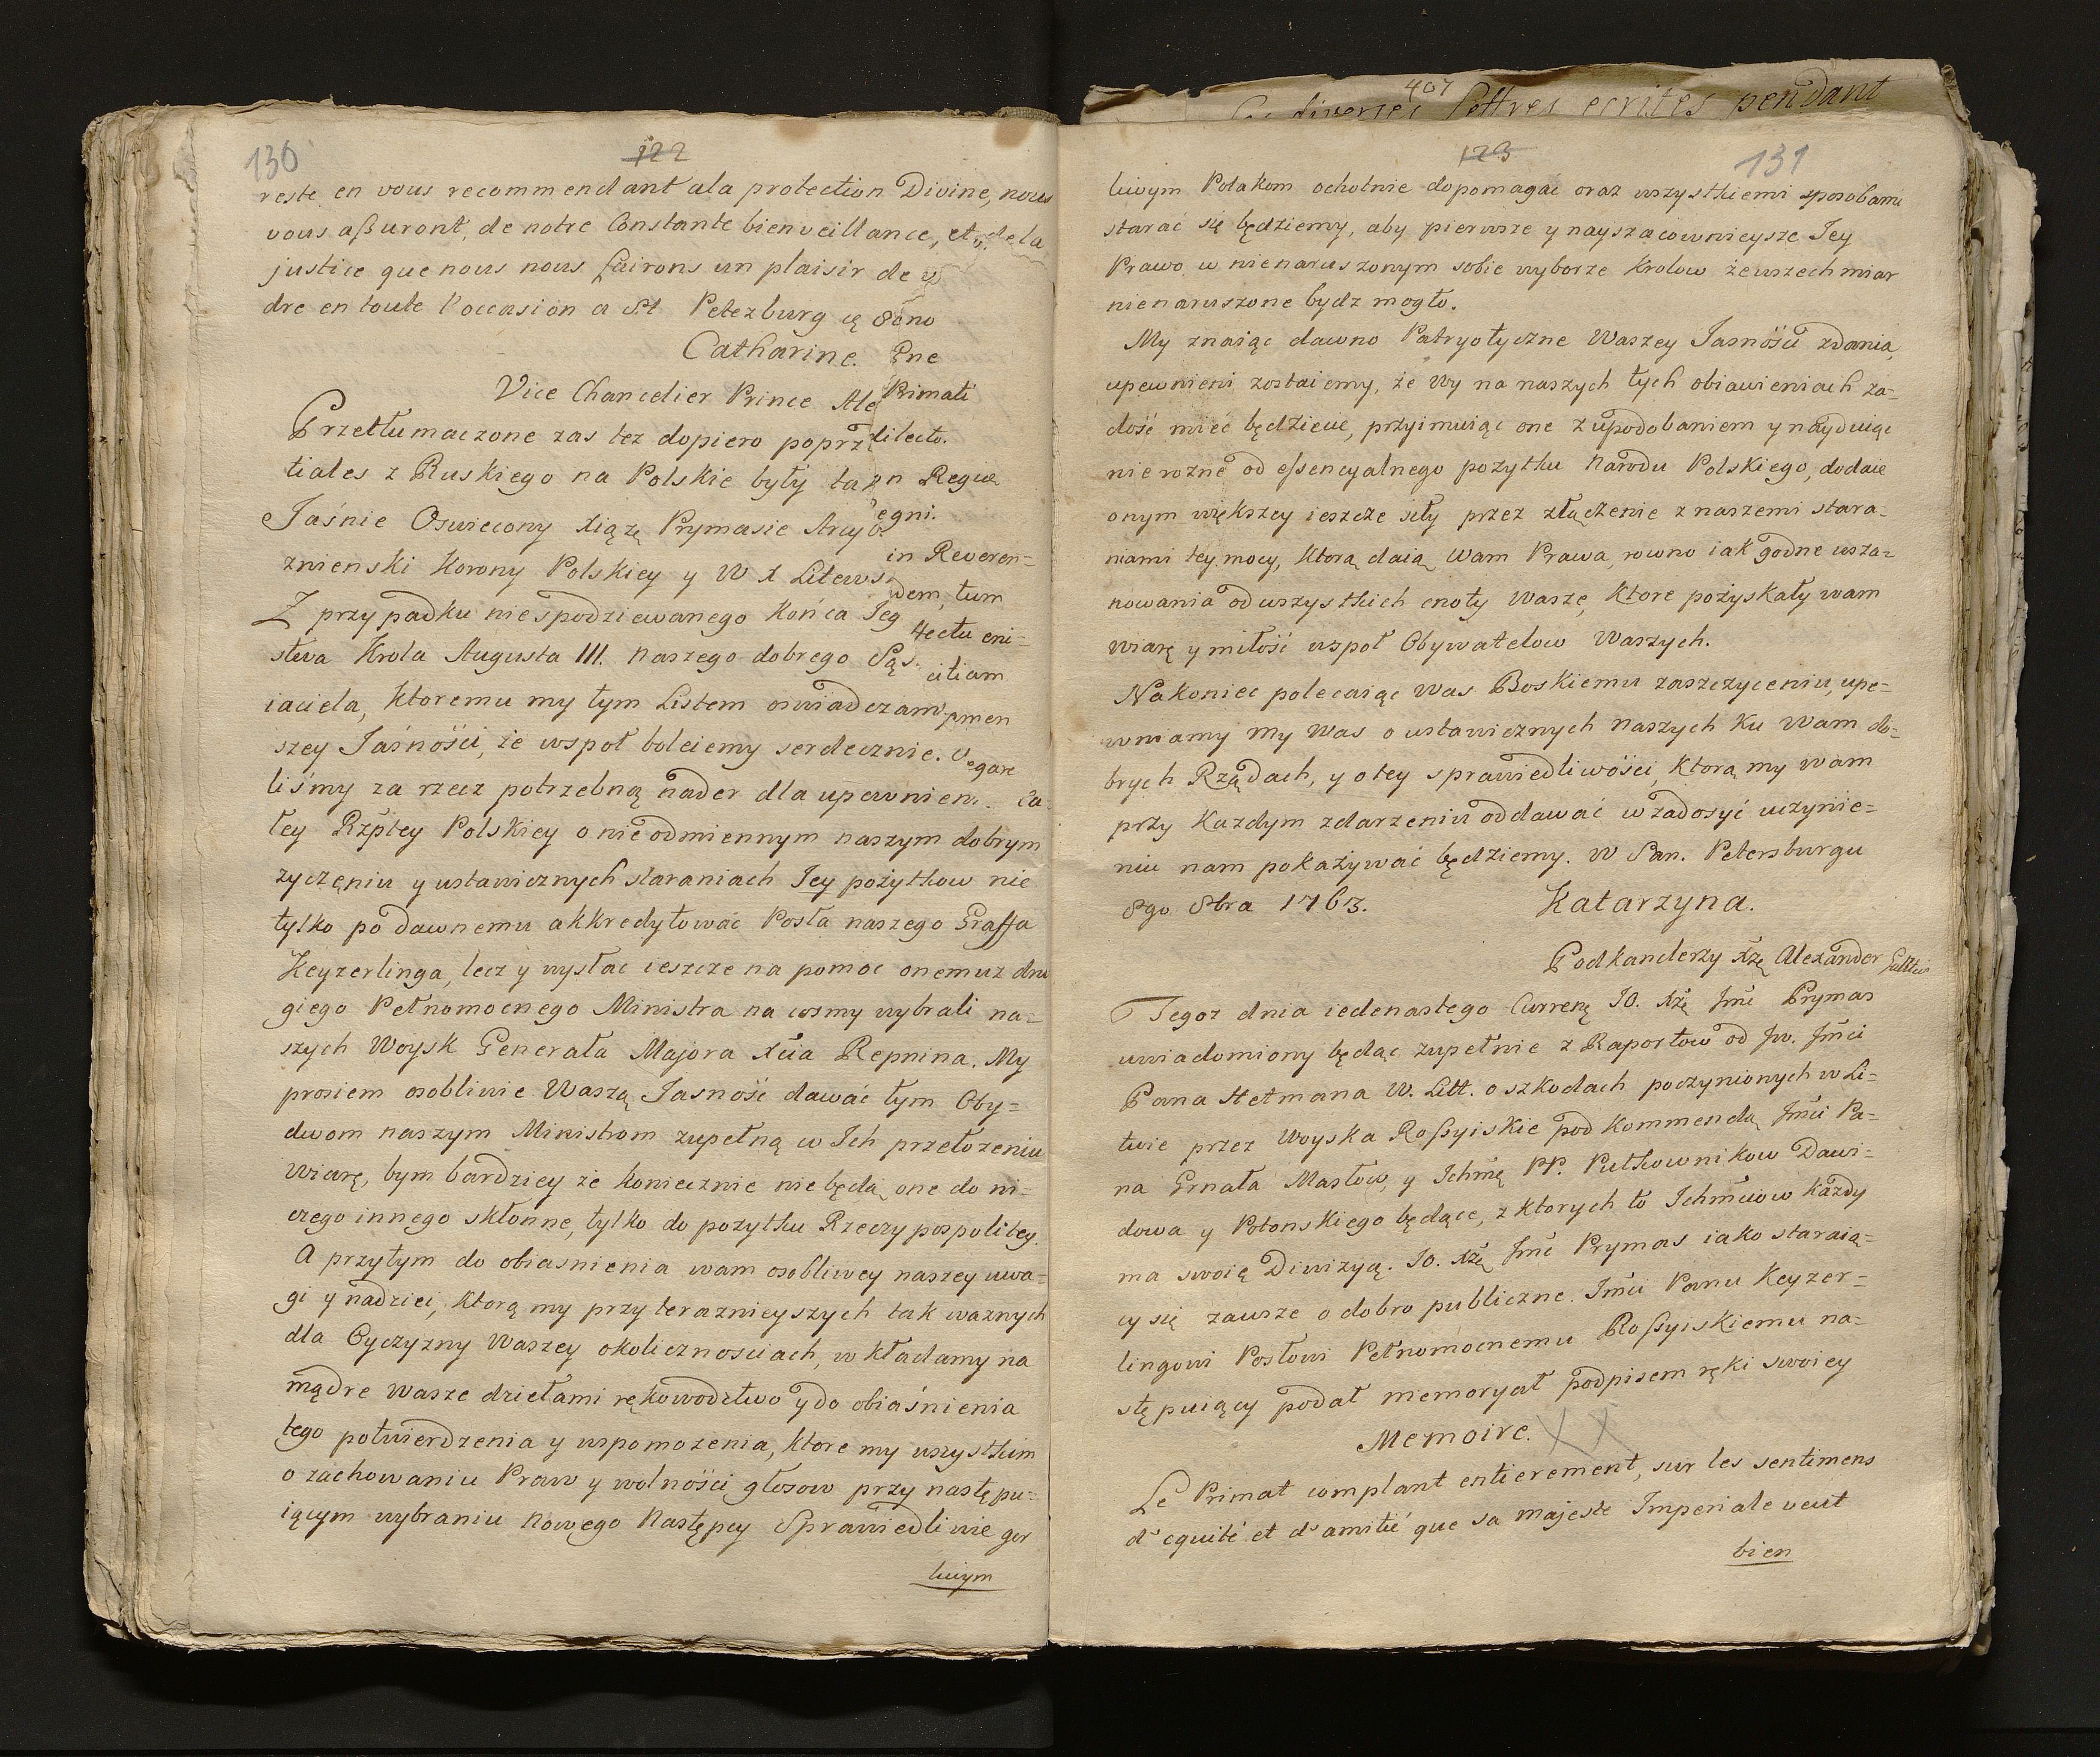 130
122
reste en vous recommendant ala protection Divine, nous
vous aßuront, de notre Constante bienveillance, et dela
justice que nous nous fairons un plaisir de
dre en toute l'occasion a St Petezburg
Catharine.
Vice Chancelier Prince Ale
Przetłumaczone zas tez dopiero poprz
tiales z Ruskiego na Polskie były ta
Jaśnie Oswiecony Xiązę Prymasie Arcyb
znienski Korony Polskiey y W X Litews
Z przypadku niespodziewanego Końca Jeg
stwa Krola Augusta III. naszego dobrego Sąs
iaciela, Ktoremu my tym Listem oswiadczam
szey Jaśności, że wspoł boleiemy serdecznie.
liśmy za rzecz potrzebną nader dla upewnien
łey Rzpltey Polskiey o nieodmiennym naszym dobrym
zyczęniu y ustawicznych staraniach Jey pożytkow nie
tylko po dawnemu akkredytować Posła naszego Graffa
Keyzerlinga, lecz y wysłac ieszcze na pomoc onemuz dru
giego Pełnomocnego Ministra na cosmy wybrali na=
szych Woysk Generała Majora Xcia Repnina. My
prosiem osobliwie Waszą Jasność dawać tym Oby=
dwom naszym Ministrom zupełną w Ich przełozeniu
wiarę, bym bardziey że koniecznie nie będą one do ni=
czego innego skłonne, tylko do pozytku Rzeczypospolitey.
A przytym do obiasnienia wam osobliwey naszey uwa=
gi y nadziei, Ktorą my przy teraznieyszych tak waznych
dla Oyczyzny Waszey okolicznosciach, w kładamy na
mądre Wasze dziełami rękowodztwo y do obiaśnienia
tego potwierdzenia y wspomozenia, Ktore my wszystkim
o zachowaniu Praw y wolności głosow przy następu=
iącym wybraniu nowego Następcy Sprawiedliwie gor
liwym
Pne
Primati
dilecto.
n Regia
egni.
in Reveren=
dem, tum
eni=
citiam
407
diverses Lettres ecrites pendant
123
131
liwym Polakom ochotnie dopomagac oraz wszystkiemi sposobami
starać się będziemy, aby pierwsze y nayszacownieysze Jey
Prawo w nienaruszonym sobie wyborze Krolow zewszech miar
nienaruszone bydz mogło.
My znaiąc dawno Patryotyczne Waszey Jasności zdania,
upewnieni zostaiemy, że Wy na naszych tych obiawieniach za=
dość mieć będziecie, przyimuiąc one z upodobaniem y nayduiąc
nie rozne od eßencyalnego pozytku Narodu Polskiego, dodacie
onym większey ieszcze siły przez złączenie z naszemi stara=
niami tey mocy, Ktorą daią Wam Prawa, rowno iak godne usza=
nowania od wszystkich cnoty Wasze, Ktore pożyskały wam
wiarę y miłość wspoł Obywatelow Waszych.
Nakoniec polecaiąc was Boskiemu zaszczyceniu, upe=
wniamy my Was o ustawicznych naszych ku Wam do=
brych Rządach, y o tey sprawiedliwości, Ktorą my wam
przy Kazdym zdarzeniu oddawać w zadosyć uczynie=
niu nam pokażywać będziemy. W San. Petersburgu
8go 8bra 1763. Katarzyna.
Podkanclerzy Xżę Alexander
Tegoz dnia iedenastego Currenę JO. Xżę Jmć Prymas
uwiadomiony będąc zupełnie z Raportow od Jw. Jmci
Pana Hetmana W. Litt. o szkodach poczynionych w Li=
twie przez Woyska Roßyiskie pod Kommendą Jmci Pa=
na Grnała Masłow, y Ichmę PP. Pułkownikow Dawi=
dowa y Połonskiego będące, z ktorych to Ichmciow Każdy
ma swoię Diwizyą. JO. Xżę Jmć Prymas iako staraią=
cy się zawsze o dobro publiczne. Jmci Panu Keyzer=
lingowi Posłowi Pełnomocnemu Roßyiskiemu na=
stępuiący podał memoryał podpisem ręki swoiey
Memoire.
Le Primat comptant entierement, sur les sentimens
d'equité et d'amitié que sa majeste Imperiale veut
bien